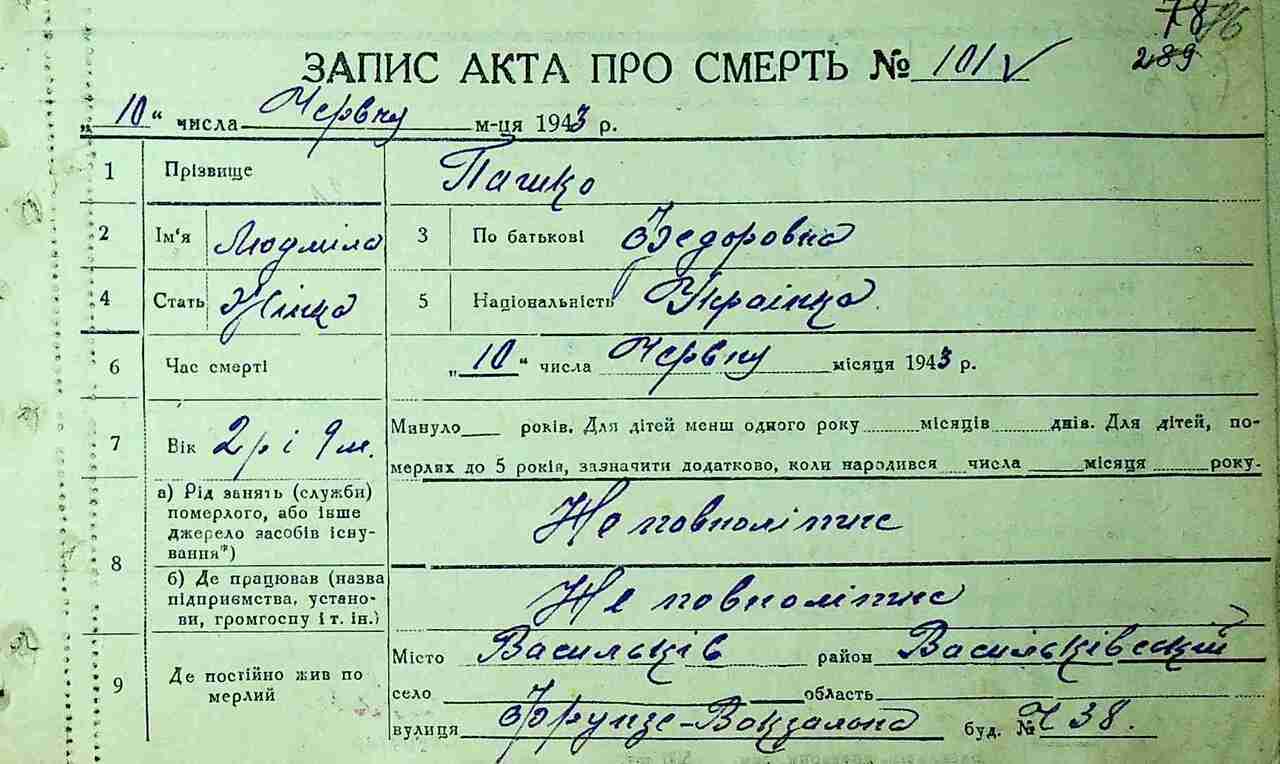 78 96
289
ЗАПИС АКТА ПРО СМЕРТЬ № 101 V
„10“ числа Червну м-ця 1943 р.
1 Прізвище Пашко
2 Ім'я Людміла 3 По батькові Федоровна
4 Стать Жінка 5 Національність Українка
6 Час смерті „10“ числа Червну місяця 1943 р.
7 Вік 2 р і 9 м. Минуло ___ років. Для дітей менш одного року ........ місяців ........ днів. Для дітей, по-
мерлих до 5 років, зазначити додатково, коли народився ___ числа ___ місяця ___ року.
8 а) Рід занять (служби)
померлого, або інше
джерело засобів існу-
вання*) Не повнолітнє
б) Де працював (назва
підприємства, устано-
ви, громгоспу і т. ін.) Не повнолітнє
9 Де постійно жив по
мерлий
Місто Васильків район Васильківський
село область
вулиця Фрунзе-Вокзальна буд. № Ч 38.